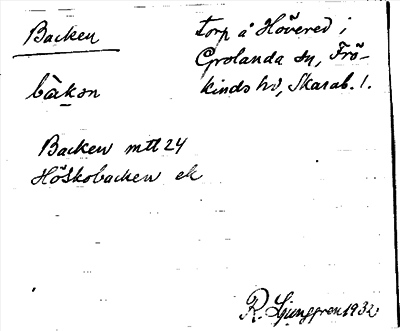 Backen
torp å Hövered i
Grolanda sn, Frö-
kinds hd, Skarab. l.
bàkən
Backen mtl 24
Höskobacken ek
R. Ljunggren 1932